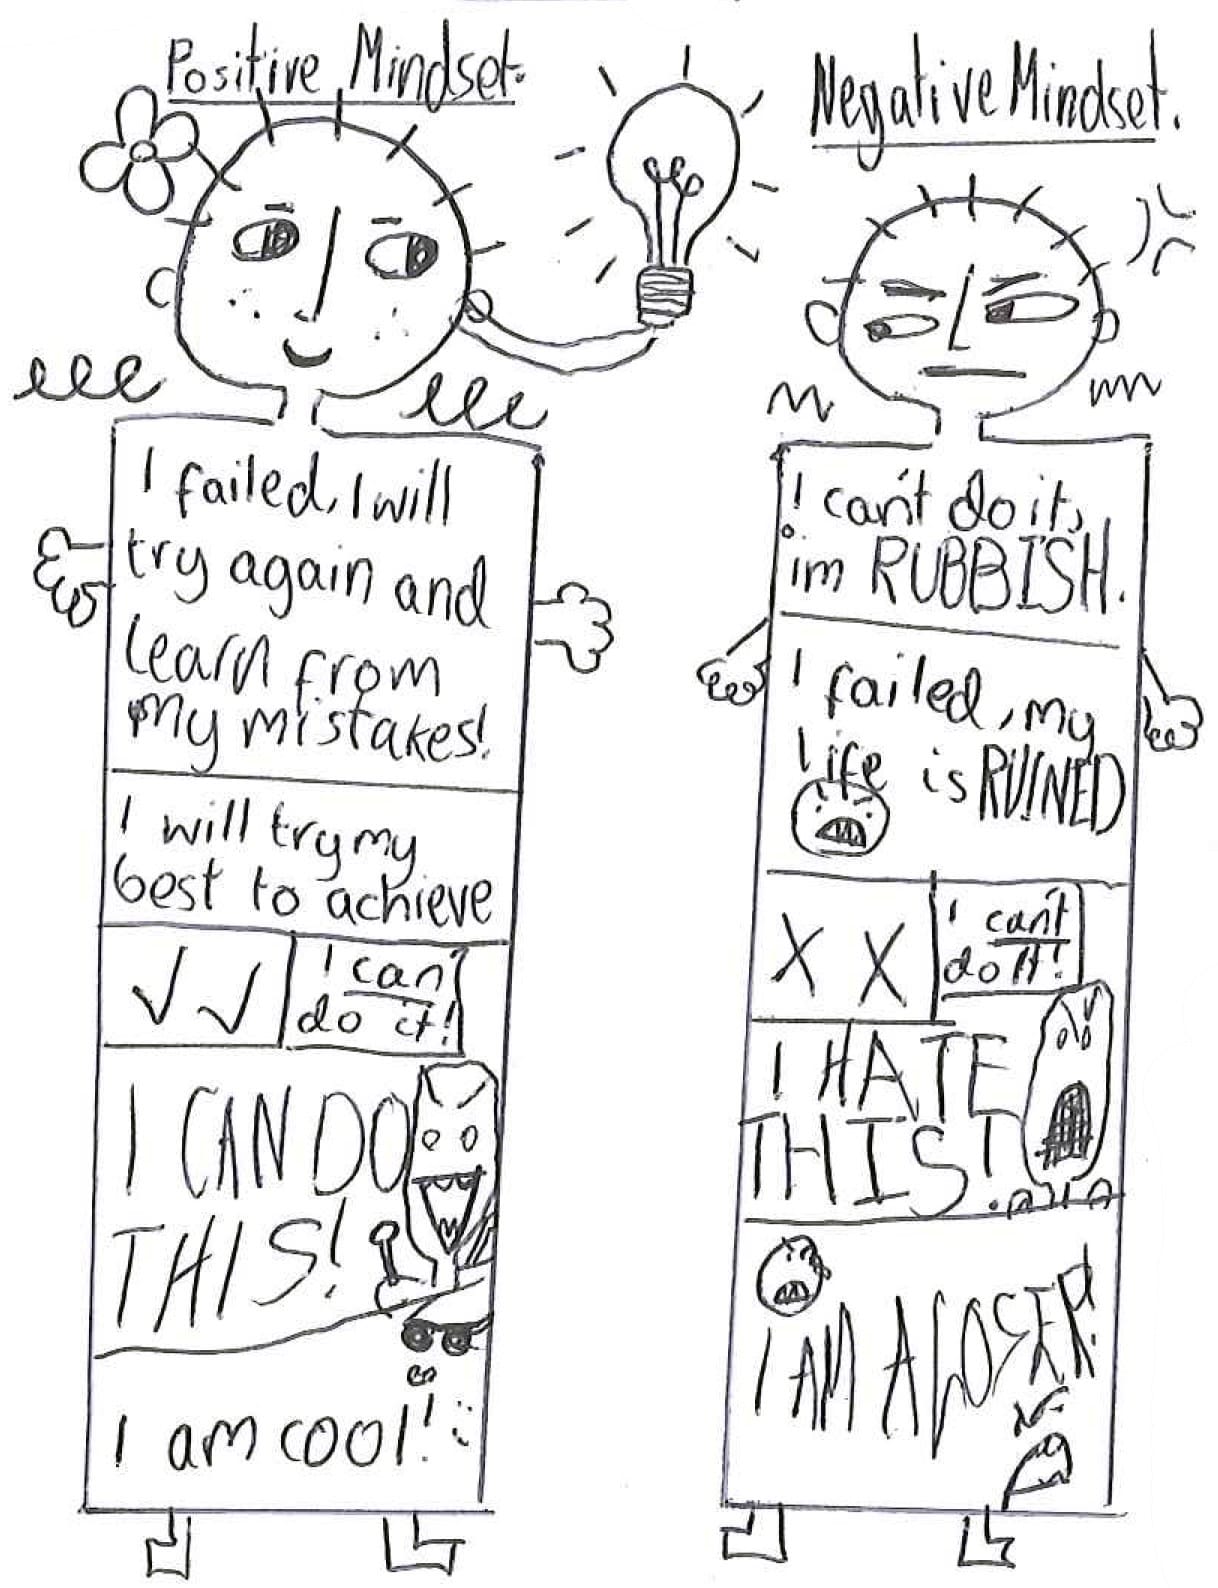 Positive Mindset.
I failed, I will
try again and
learn from
my mistakes!
I will try my
best to achieve
I can
do it!
I CAN DO
THIS!
I am cool!
Negative Mindset.
I can't do it,
im RUBBISH.
I failed, my
life is RUINED
I can't
do it!
I HATE
THIS!
I AM A LOSER!